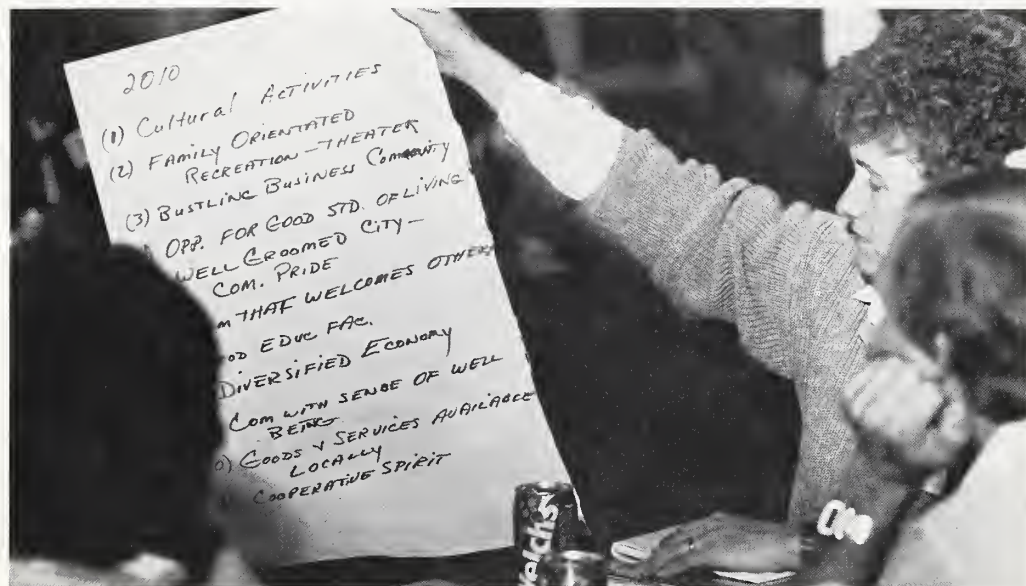 2010
(1) Cultural ACTIVITIES
(2) FAMILY ORIENTATED
RECREATION — THEATER
(3) BUSTLING BUSINESS COMMUNITY
OPP. FOR GOOD STD. OF LIVING
WELL GROOMED CITY —
COM. PRIDE
THAT WELCOMES OTHERS
EDUC FAC.
DIVERSIFIED ECONOMY
COM WITH SENSE OF WELL
BEING
GOODS & SERVICES AVAILABLE
LOCALLY
COOPERATIVE SPIRIT
Welch's